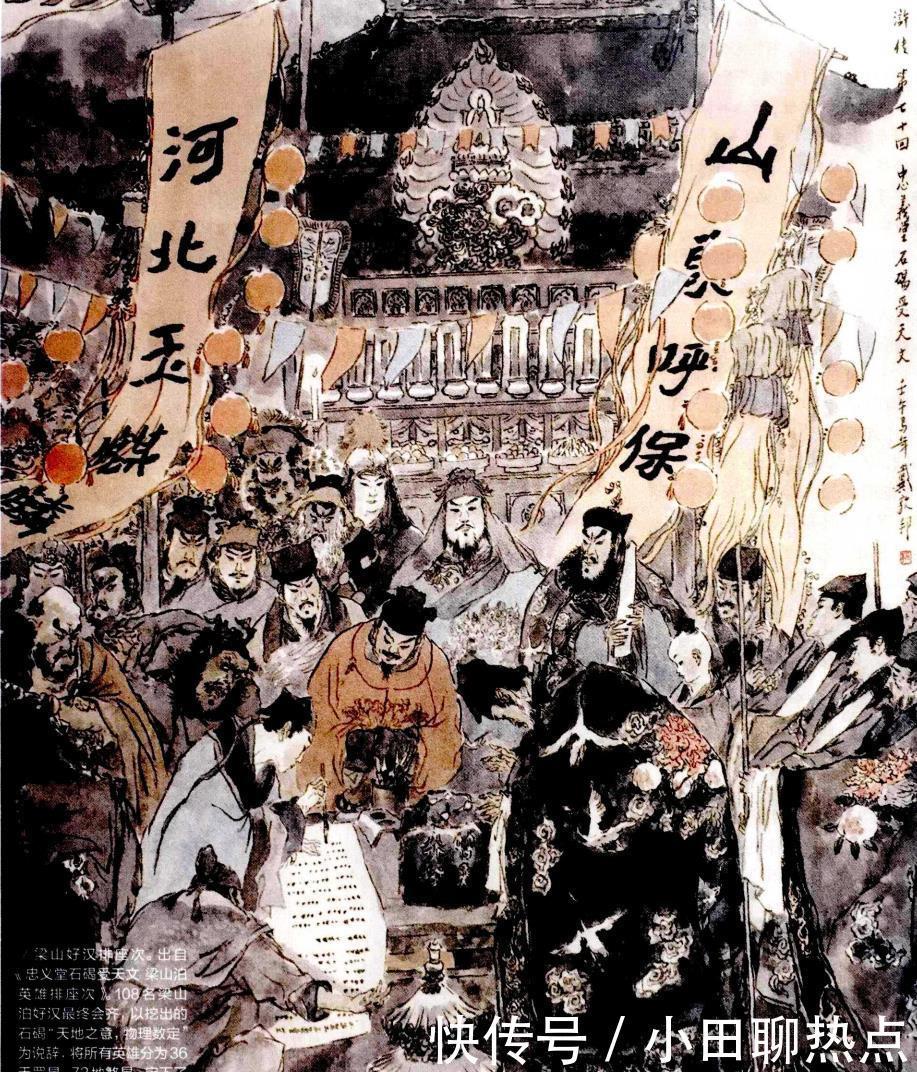 河北玉麒麟
山東呼保
滸传 第七十回 忠義堂石碣受天文 壬午馬年 戴敦邦
/ 梁山好汉排座次。出自
《忠义堂石碣受天文 梁山泊
英雄排座次》108名梁山
泊好汉最终会齐，以挖出的
石碣“天地之意，物理数定”
为说辞. 将所有英雄分为36
快传号 / 小田聊热点